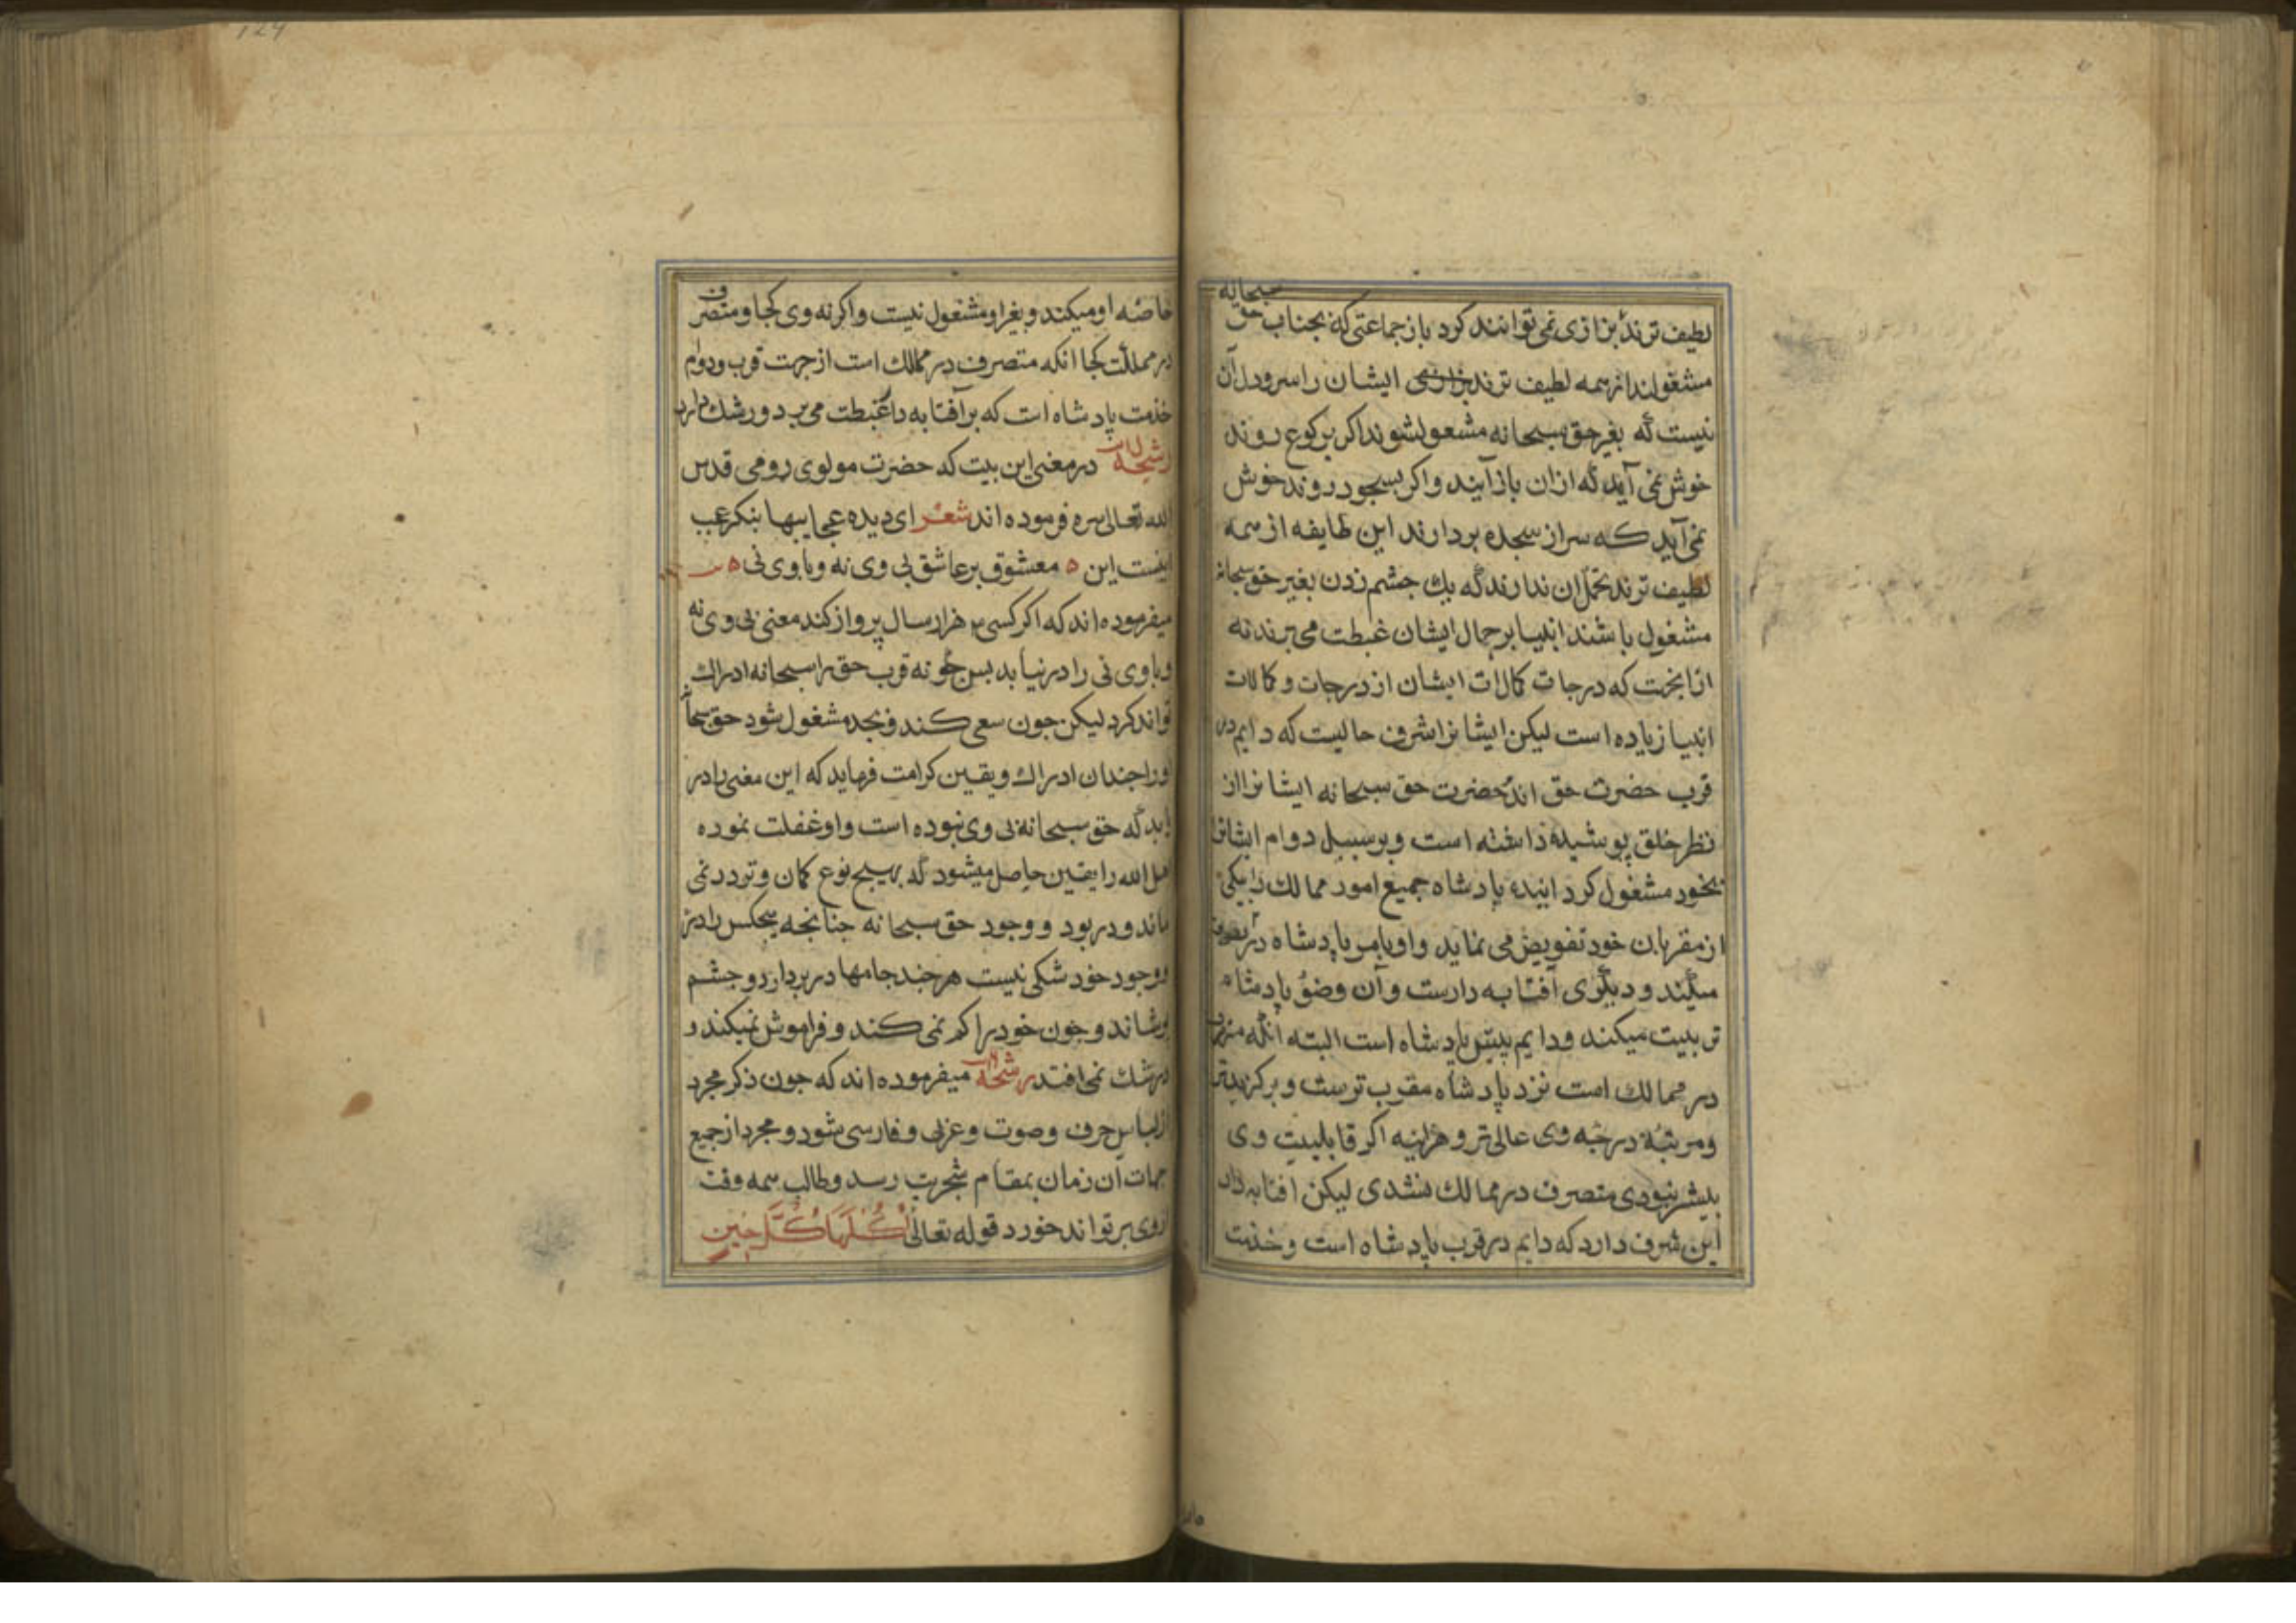 لطیف ترند بزازی نمی توانند کرد باز جماعتی که بجناب حق سبحانه
مشغولند از همه لطیف ترند ایشان را سر و دل آن
نیست که بغیر حق سبحانه مشعول شوند اکر برکوع روند
خوش نمی آید که ازان باز آیند و اکر بسجود روند خوش
نمی آید که سر از سجده بردارند این طایفه از همه
لطیف ترند تحمل ان ندارند که یك جشم زدن بغیر حق سبحانه
مشغول باشند انبیا بر جمال ایشان غبطت می برند نه
ازانجهت که درجات کمالات ایشان از درجات و کمالات
انبیا زیاده است لیکن ایشانرا شرف حالیست که دایم در
قرب حضرت حق اند حضرت حق سبحانه ایشانرا از
نظر خلق پوشیده داشته است و بر سبیل دوام ایشانرا
بخود مشغول کردانیده پادشاه جمیع امور ممالك را بیکی
از مقربان خود تفویض می نماید و او بامر پادشاه در تصرف
میکند و دیگری آفتابه دارست و آن وضو پادشاه
ترتیب میکند و دایم پیش پادشاه است البته انکه متصرف
در ممالك است نزد پادشاه مقرب ترست و برکزیده تر
و مرتبه درجه وی عالی تر و هراینه اکر قابلیت وی
بیشتر نبودی متصرف در ممالك نشدی لیکن افتابه دار
این شرف دارد که دایم در قرب پادشاه است و خدمت
خاصه او میکند و بغیر او مشغول نیست و اکرنه وی کجا و متصرف
در مملکت کجا انکه متصرف در ممالك است از جهت قرب و دوام
خدمت پادشاه است که بر آفتابه دار غبطت می برد و رشك دارد
رشحه در معنی این بیت که حضرت مولوی رومی قدس
الله تعالی سره فرموده اند شعر ای دیده عجایبها بنکر عجب
اینست این ه معشوق بر عاشق بی وی نه و با وی نی ه
میفرموده اند که اکر کسی هزار سال پرواز کند معنی بی وی نه
و با وی نی را در نیابد پس جکونه قرب حق را سبحانه ادراك
تواند کرد لیکن جون سعی کند و بجد مشغول شود حق سبحانه
اورا جندان ادراك و یقین کرامت فرماید که این معنی را در
یابد که حق سبحانه بی وی نبوده است و او غفلت نموده
اهل الله را یقین حاصل میشود که بهیج نوع کمان و تردد نمی
ماند و در بود و وجود حق سبحانه جنانجه هیجکس را در
وجود خود شکی نیست هر جند جامها در بر دارد و جشم
پوشاند و جون خود را کم نمی کند و فراموش نمیکند و
در شك نمی افتد رشحه میفرموده اند که جون ذکر مجرد
از لباس حرف و صوت و عربی و فارسی شود و مجرد از جمیع
جهات آن زمان بمقام شجریت رسد و طالب همه وقت
از وی بر تواند خورد قوله تعالی اُكُلَهَا كُلَّ حِينٍ